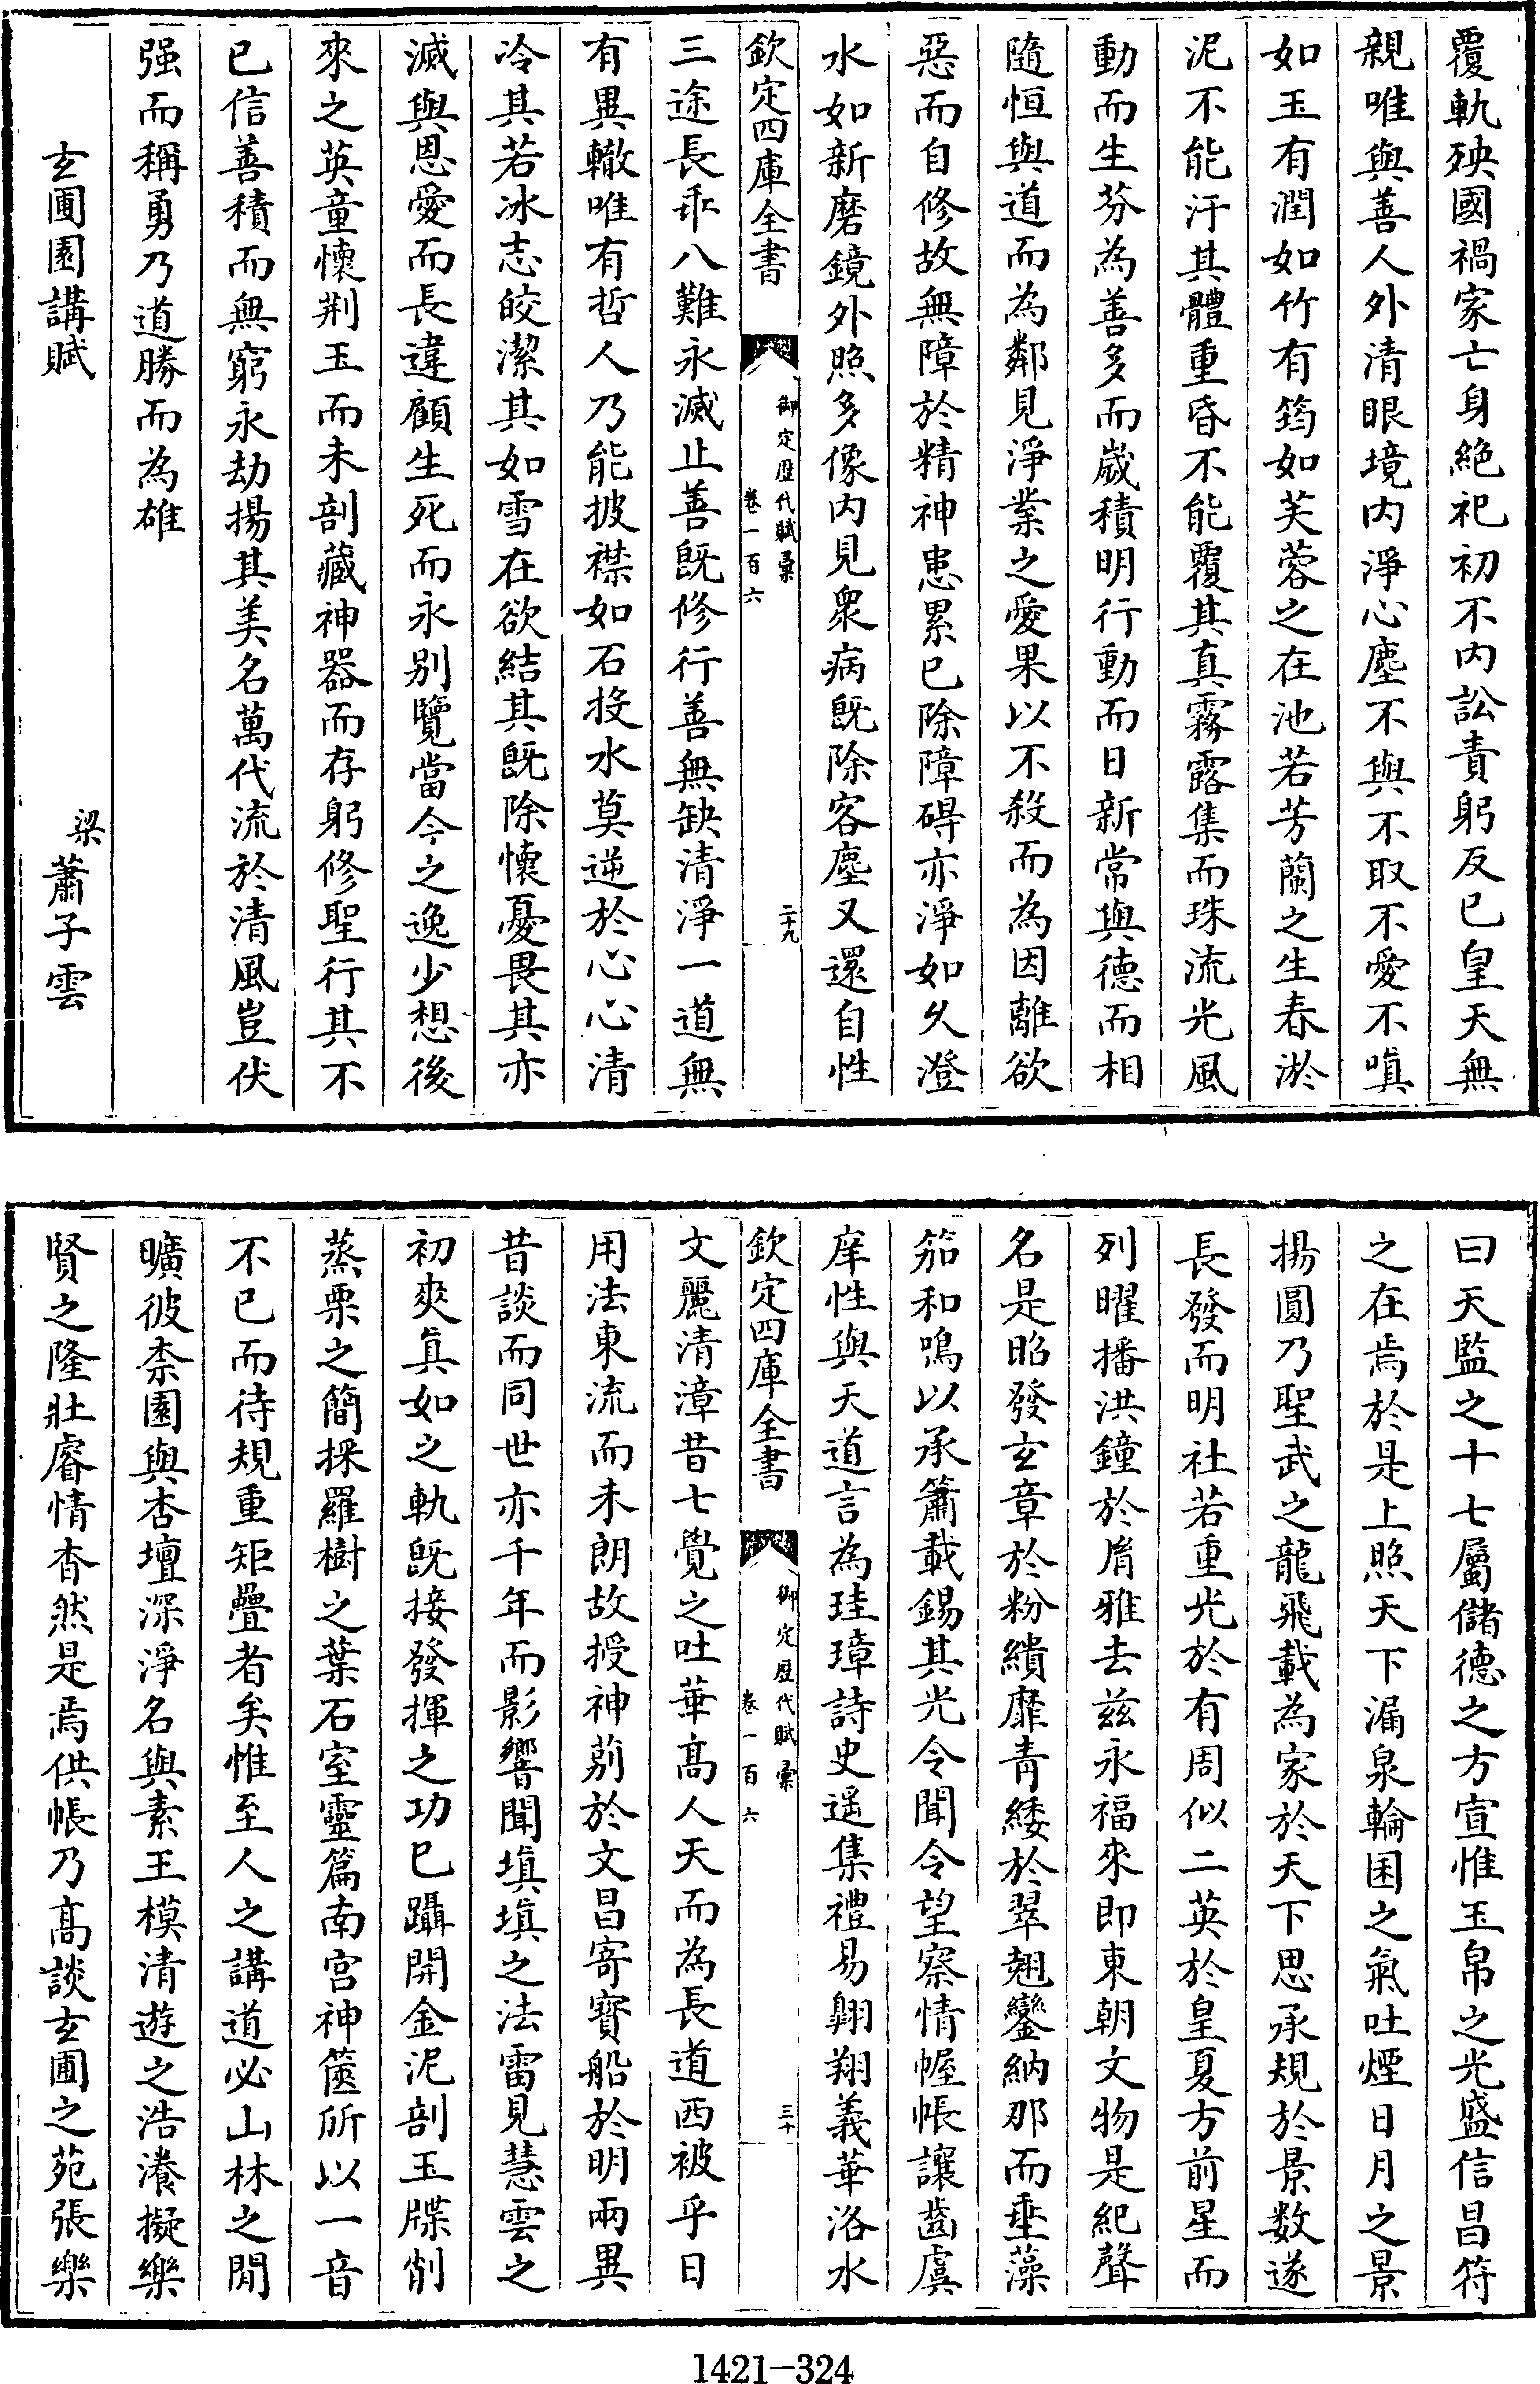 覆軌殃國禍家亡身絶祀初不内訟責躬反已皇天無
親唯與善人外清眼境内淨心塵不與不取不愛不嗔
如玉有潤如竹有筠如芙蓉之在池若芳蘭之生春淤
泥不能汙其體重昏不能覆其真霧露集而珠流光風
動而生芬為善多而嵗積明行動而日新常與德而相
隨恒與道而為鄰見淨業之愛果以不殺而為因離欲
惡而自修故無障於精神患累已除障碍亦淨如久澄
水如新磨鏡外照多像内見衆病既除客塵又還自性
欽定四庫全書
御定歴代賦彙
卷一百六
二十九
三途長乖八難永滅止善既修行善無缺清淨一道無
有異轍唯有哲人乃能披襟如石投水莫逆於心心清
冷其若冰志皎潔其如雪在欲結其既除懷憂畏其亦
滅與恩愛而長違顧生死而永别覽當今之逸少想後
來之英童懷荆玉而未剖藏神器而存躬修聖行其不
已信善積而無窮永劫揚其美名萬代流於清風豈伏
强而稱勇乃道勝而為雄
玄圃園講賦
梁蕭子雲
曰天監之十七屬儲德之方宣惟玉帛之光盛信昌符
之在焉於是上照天下漏泉輪囷之氣吐煙日月之景
揚圓乃聖武之龍飛載為家於天下思承規於景数遂
長發而明社若重光於有周似二英於皇夏方前星而
列曜播洪鐘於㣧雅去兹永福來即東朝文物是紀聲
名是昭發玄章於粉繢靡青緌於翠翹鑾納那而垂藻
笳和鳴以承簫載錫其光令聞令望察情幄帳讓齒虞
庠性與天道言為珪璋詩史遥集禮易翺翔義華洛水
欽定四庫全書
御定歴代賦彙
卷一百六
三十
文麗清漳昔七覺之吐華髙人天而為長道西被乎日
用法東流而未朗故授神荊於文昌寄寳船於明兩異
昔談而同世亦千年而影響聞填填之法雷見慧雲之
初爽真如之軌既接發揮之功已躡開金泥剖玉牒削
蒸栗之簡採羅樹之葉石室靈篇南宫神篋所以一音
不已而待規重矩疊者矣惟至人之講道必山林之閒
曠彼柰園與杏壇深淨名與素王模清遊之浩瀁擬樂
賢之隆壯睿情杳然是焉供帳乃髙談玄圃之苑張樂
1421-324